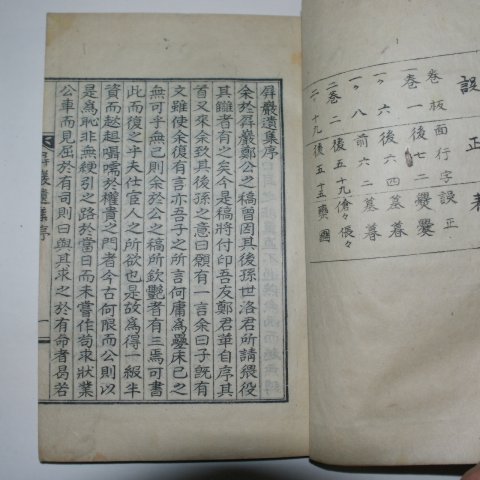 誤正表
卷板面行字誤正
一卷一後七二
一々六後六四
一々八前六二墓暮
二卷二後五十九傖々倀々
二々十九後五十五
屛巖遺集序
余於屛巖鄭公之稿曾因其後孫世洛君所請猥役
其讎者有之矣今是稿將付印吾友鄭君華自序其
首又來余致其後孫之意曰願有一言余曰子旣有
文雖使余復有言亦吾子之所言何庸爲疊床已之
無可乎無已則余於公之稿所欽艷者有三焉可書
此而復之乎夫仕宦人之所欲也是故爲得一級半
資而趑趄囁嚅於權貴之門者今古何限而公則以
是爲恥非無綆引之路於當日而未嘗作苟求狀業
公車而見屈於有司則曰與其求之於有命者曷若
屛巖遺集序
一